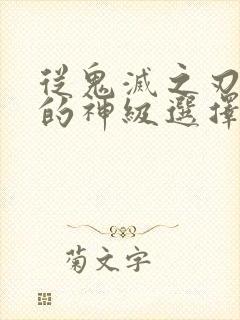 從鬼滅之刃
的神級選擇
菊文字